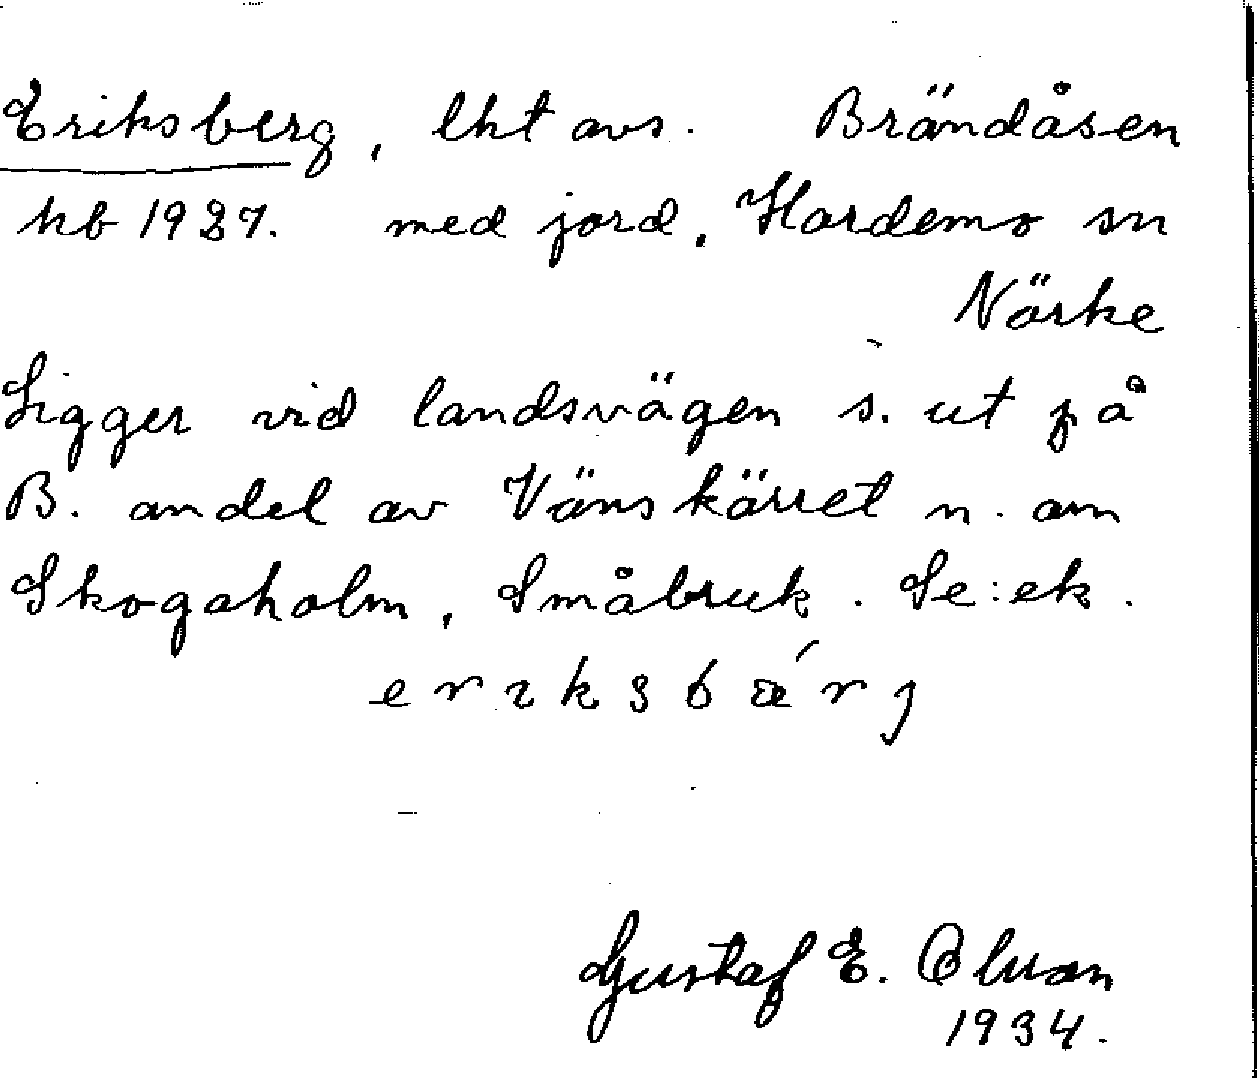 Eriksberg, lht avs. Brändåsen
hb 1927. med jord, Hardemo sn
Närke
Ligger vid landsvägen s. ut på
B. andel av Vänskärret n. om
Skogaholm, Småbruk. Se: ek.
eriksbǽrj
Gustaf E. Olsson
1934.